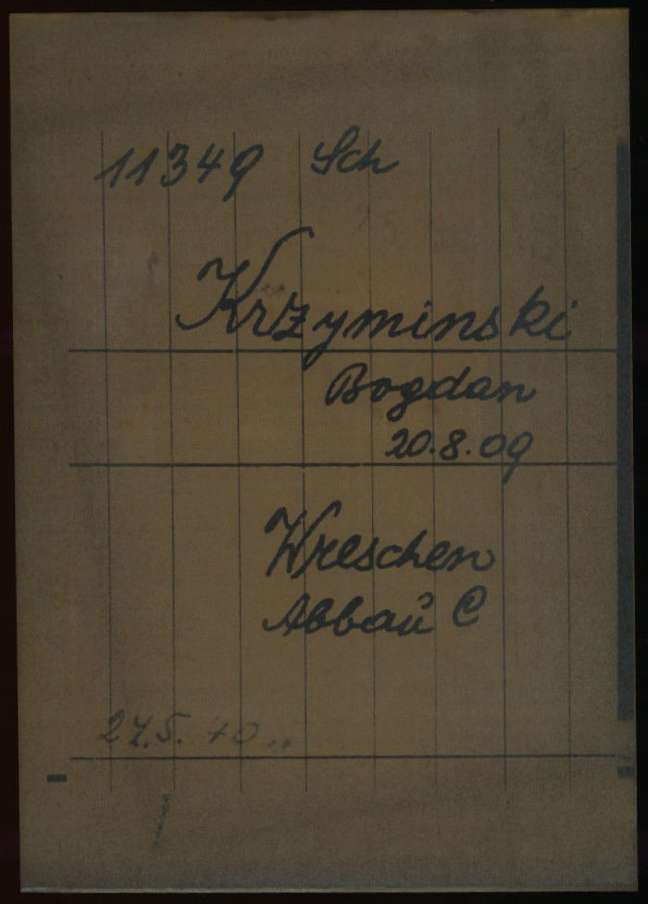 11349 Sch
Krzyminski
Bogdan
20.8.09
Wreschen
Abbaŭ C
27.5.40